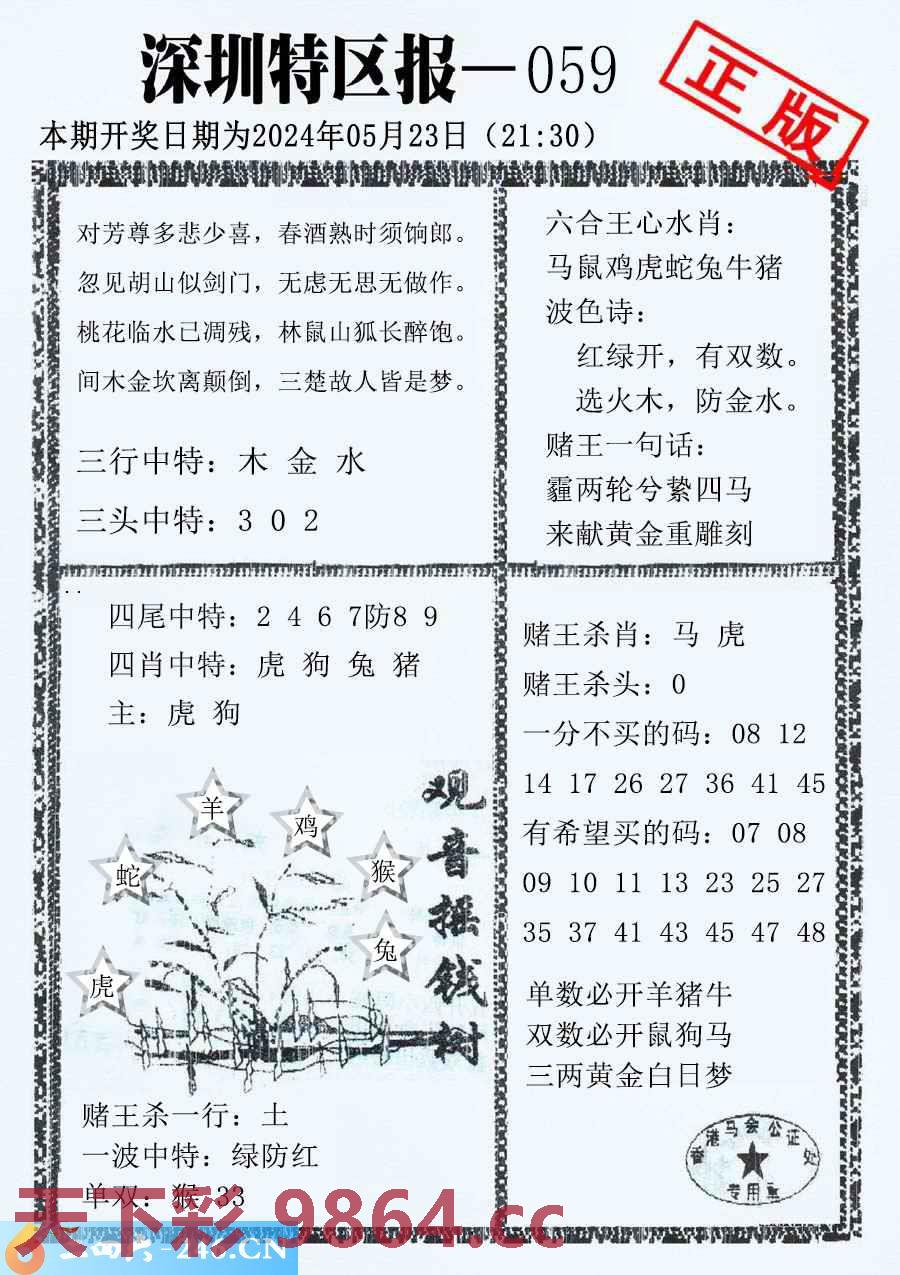 深圳特区报—059
正版
本期开奖日期为2024年05月23日（21:30）
对芳尊多悲少喜，春酒熟时须饷郎。
忽见胡山似剑门，无虑无思无做作。
桃花临水已凋残，林鼠山狐长醉饱。
间木金坎离颠倒，三楚故人皆是梦。
三行中特：木 金 水
三头中特：3 0 2
六合王心水肖：
马鼠鸡虎蛇兔牛猪
波色诗：
红绿开，有双数。
选火木，防金水。
赌王一句话：
霾两轮兮絷四马
来献黄金重雕刻
四尾中特：2 4 6 7防8 9
四肖中特：虎 狗 兔 猪
主：虎 狗
羊
鸡
蛇
猴
兔
虎
观音摇钱树
赌王杀一行：土
一波中特：绿防红
单双：猴 33
赌王杀肖：马 虎
赌王杀头：0
一分不买的码：08 12
14 17 26 27 36 41 45
有希望买的码：07 08
09 10 11 13 23 25 27
35 37 41 43 45 47 48
单数必开羊猪牛
双数必开鼠狗马
三两黄金白日梦
香港马会公证处
专用章
天下彩 9864.cc